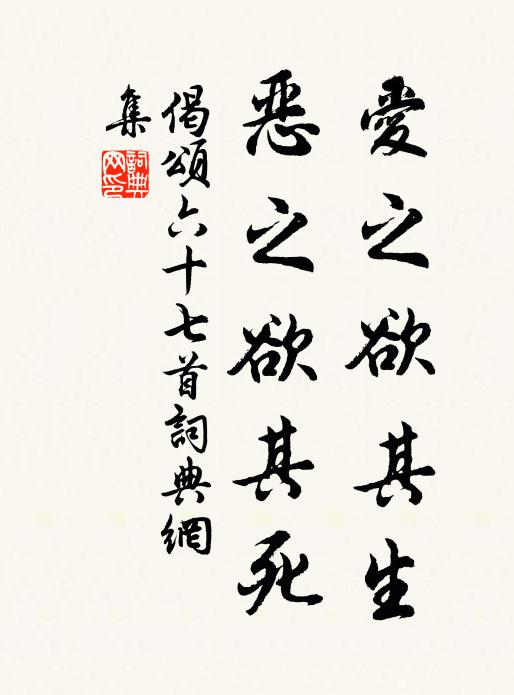 愛之欲其生
惡之欲其死
偈頌六十七首詞典網
集
詞典
网印